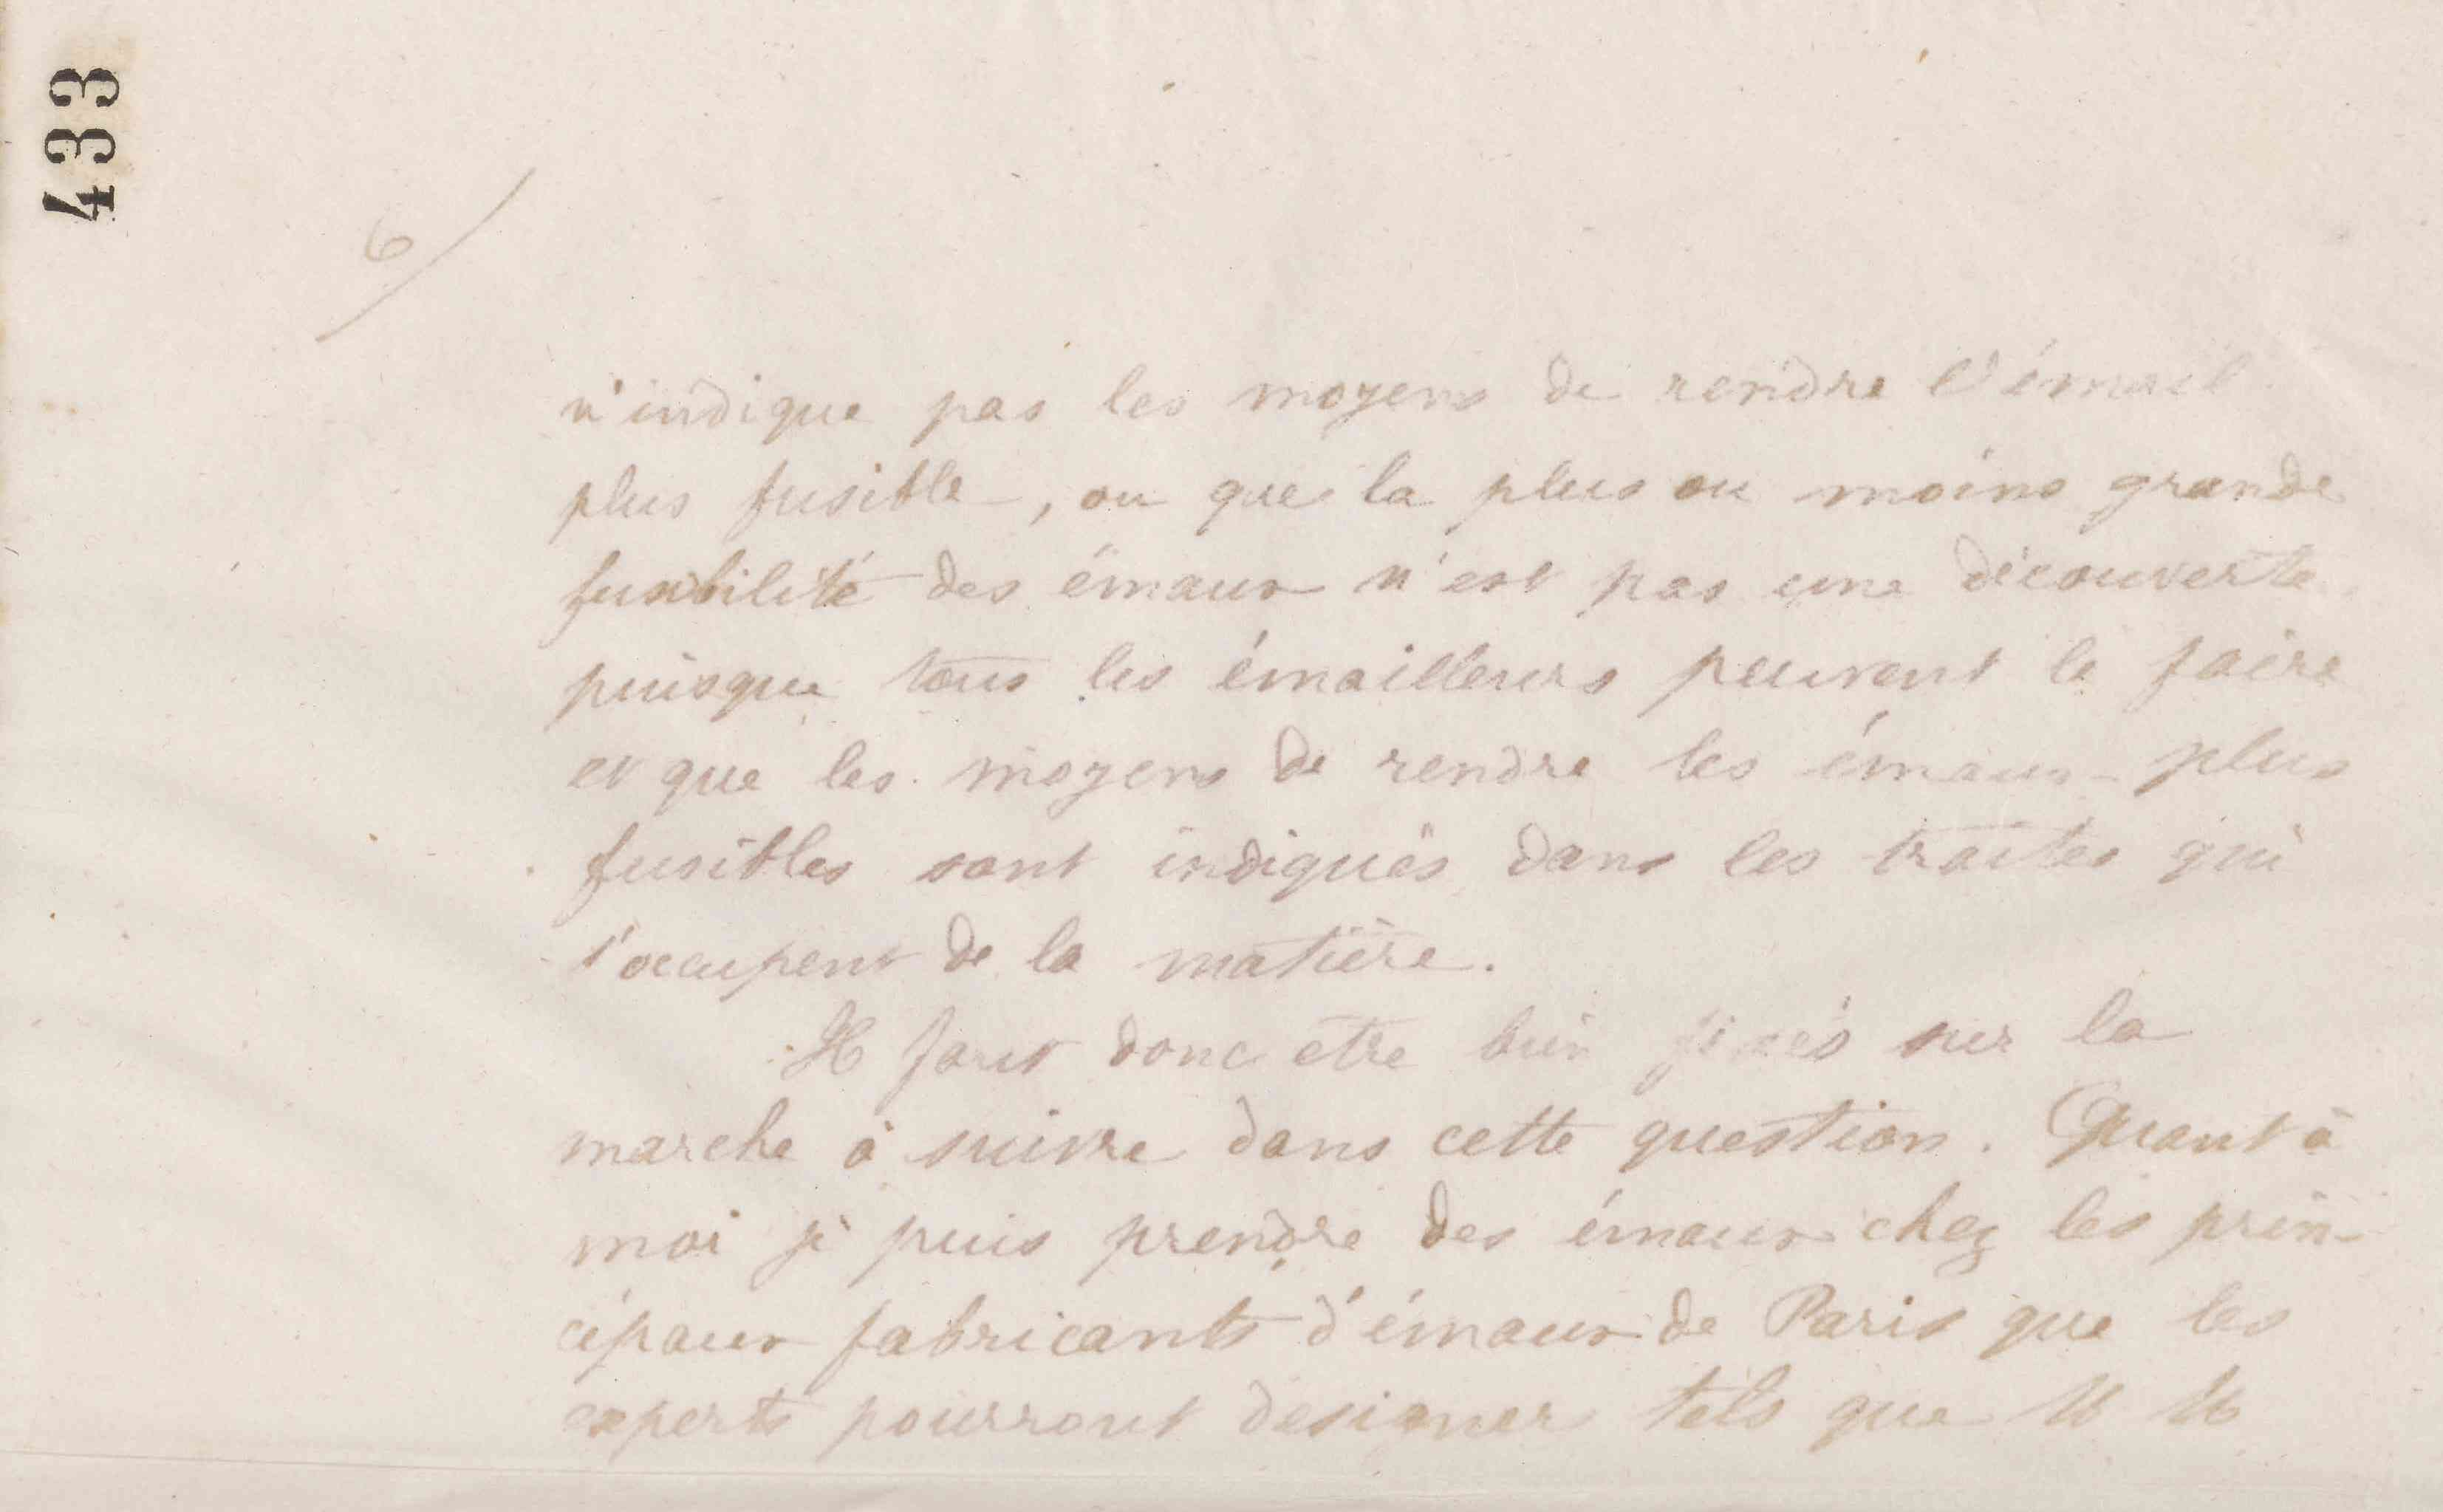 433
6
n'indique pas les moyens de rendre l'émail
plus fusible, ou que la plus ou moins grande
fusibilité des émaux n'est pas une découverte
puisque tous les émailleurs peuvent le faire
et que les moyens de rendre les émaux plus
fusibles sont indiqués dans les traités qui
s'occupent de la matière.
Il faut donc etre bien fixés sur la
marche à suivre dans cette question. Quant à
moi je puis prendre des émaux chez les prin-
cipaux fabricants d'émaux de Paris que les
experts pourront designer tels que M M